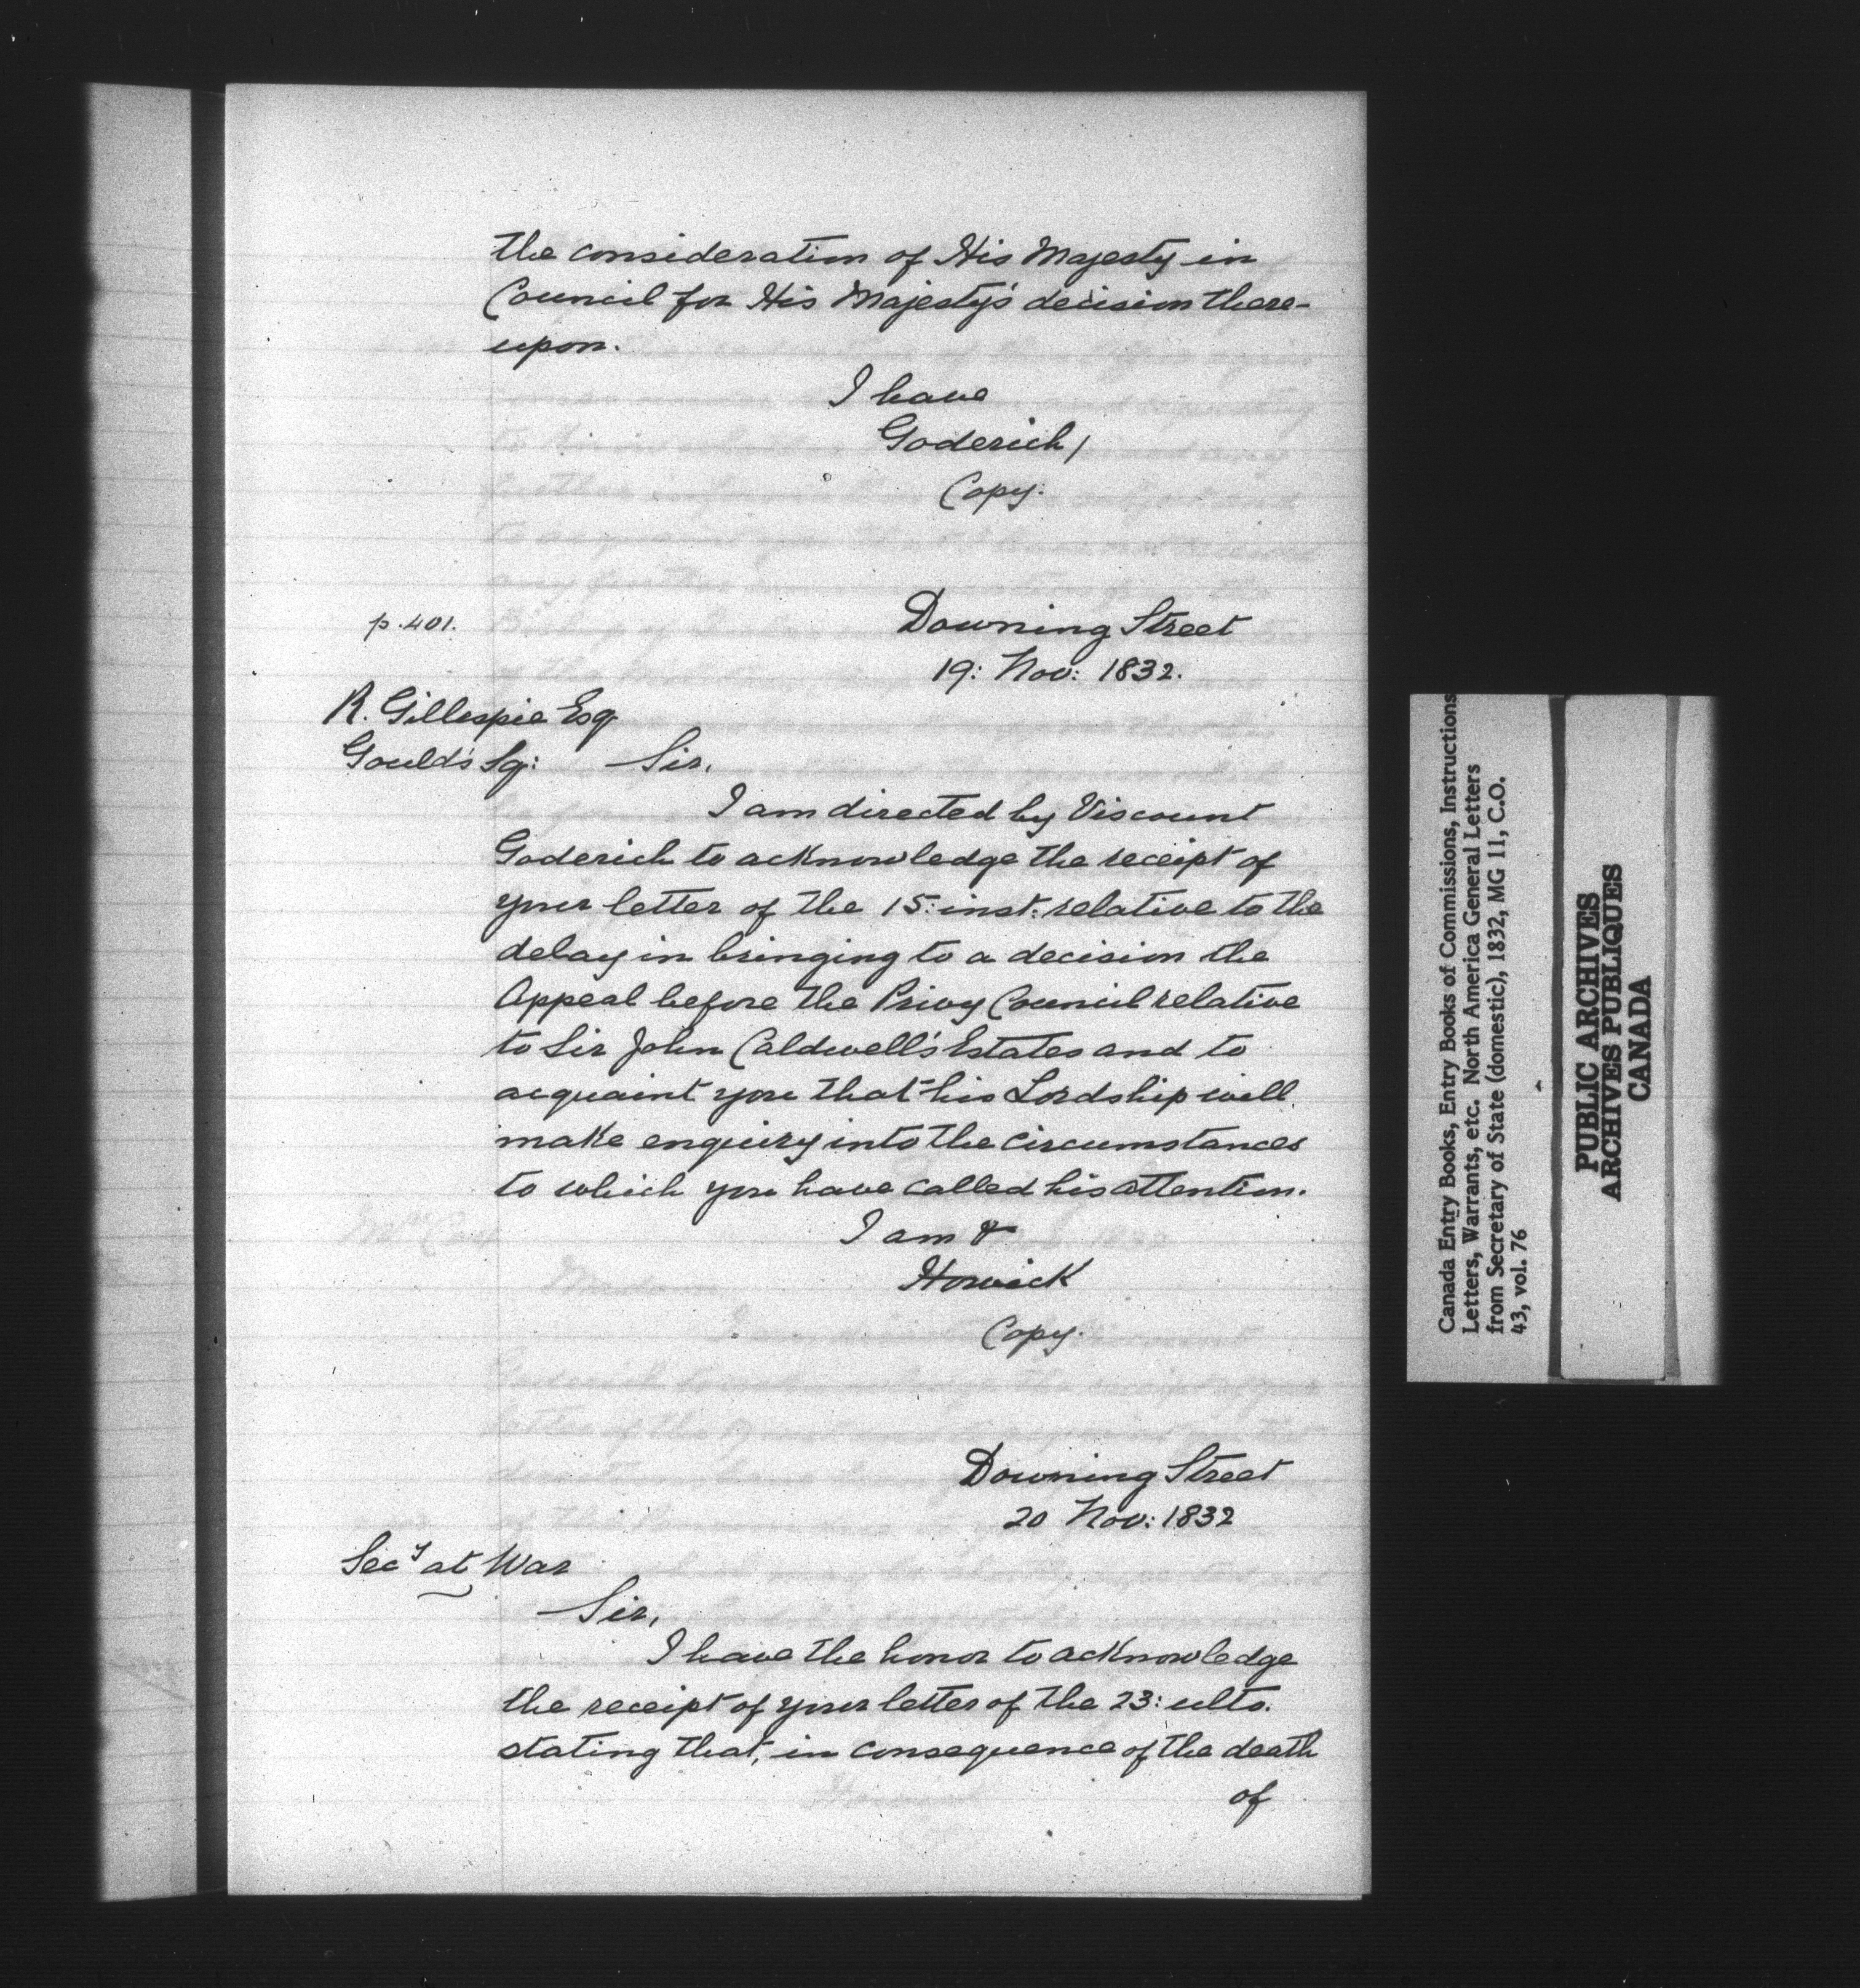 the consideration of His Majesty in
Council for His Majesty's decision there-
upon.
I have
Goderich/
Copy.
p. 401.
Downing Street
19: Nov: 1832.
R. Gillespie Esq
Gould's Sq:
Sir,
I am directed by Viscount
Goderich to acknowledge the receipt of
your letter of the 15: inst: relative to the
delay in bringing to a decision the
Appeal before the Privy Council relative
to Sir John Caldwell's Estates and to
acquaint you that his Lordship will
make enquiry into the circumstances
to which you have called his attention.
I am &
Howick
Copy.
Downing Street
20 Nov: 1832
Secy at War
Sir,
I have the honor to acknowledge
the receipt of your letter of the 23: ulto.
stating that, in consequence of the death
of
Canada Entry Books, Entry Books of Commissions, Instructions
Letters, Warrants, etc. North America General Letters
from Secretary of State (domestic), 1832, MG 11, C.O.
43, vol. 76
PUBLIC ARCHIVES
ARCHIVES PUBLIQUES
CANADA